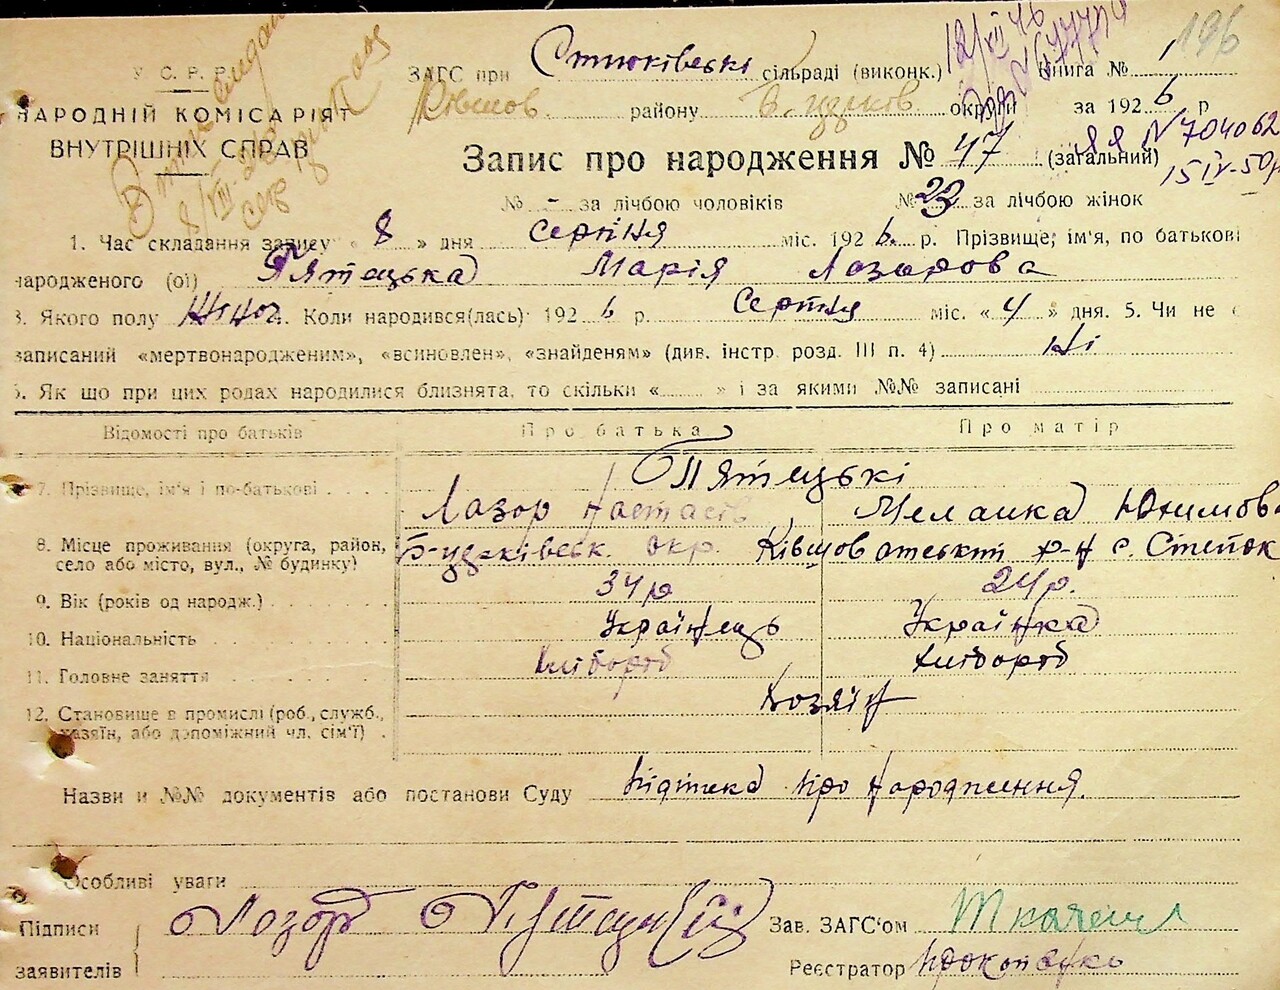 У С. Р. Р.
НАРОДНІЙ КОМІСАРІЯТ
ВНУТРІШНІХ СПРАВ
196
ЗАГС при сільраді (виконк.) Книга № 1
району округи за 1926 р
Запис про народження № 47 (загальний)
№ - за лічбою чоловіків № 23 за лічбою жінок
ЯЯ № 704062
15 IV-50р
1. Час складання запису « 8 » дня серпня міс. 1926. р. Прізвище, ім'я, по батькові
народженого (ої) Пятецька Марія Лазорова
3. Якого полу Жіноч. Коли народився(лась) 1926 р. Серпня міс. « 4 » дня. 5. Чи не є
записаний «мертвонародженим», «всиновлен», «знайденям» (див. інстр. розд. III п. 4) Ні
6. Як що при цих родах народилися близнята, то скільки « » і за якими №№ записані
Відомості про батьків Про батька Про матір
7. Прізвище, ім'я і по-батькові Пятецькі
Лазор Настасів Меланка Юхимова
8. Місце проживання (округа, район, село або місто, вул., № будинку) окр. р-н с. Степок
9. Вік (років од народж.) 34р 24р.
10. Національність Українець Українка
11. Головне заняття Хлібороб Хлібороб
12. Становище в промислі (роб., служб., хазяїн, або допоміжний чл. сім'ї) Хозяїн
Назви и №№ документів або постанови Суду Підписка про народження.
Особливі уваги
Підписи заявителів Лазор Пятецькій Зав. ЗАГС'ом
Реєстратор Прокопенко